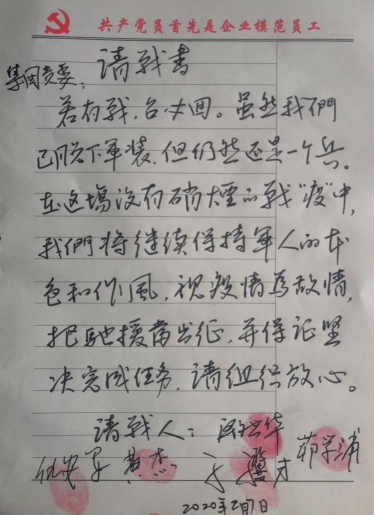 共产党员首先是企业模范员工
请戰書
集团党委：
若有戰，召必回。虽然我們
已脱下軍装，但仍然还是一个兵。
在这場没有硝煙的戰“疫”中，
我們将继续保持軍人的本
色和作風，视疫情為敌情，
把驰援当出征，并保证坚
决完成任务，请组织放心。
请戰人：
杰
2020年2月7日